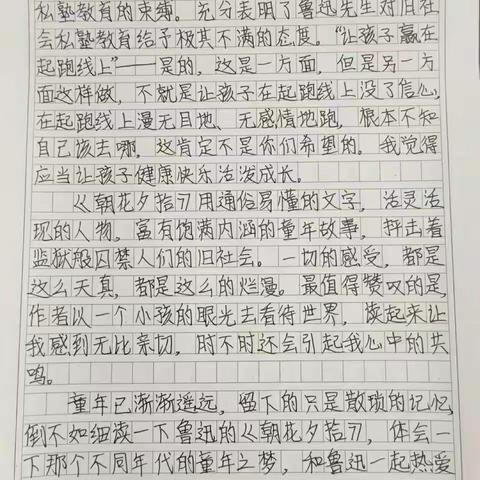 私塾教育的束缚。充分表明了鲁迅先生对旧社
会私塾教育给予极其不满的态度。“让孩子赢在
起跑线上”——是的，这是一方面，但是另一方
面这样做，不就是让孩子在起跑线上没了信心，
在起跑线上漫无目地、无感情地跑，根本不知
自己该去哪，这肯定不是你们希望的。我觉得
应当让孩子健康快乐活泼成长。
《朝花夕拾》用通俗易懂的文字，活灵活
现的人物，富有饱满内涵的童年故事，抨击着
监狱般囚禁人们的旧社会。一切的感受，都是
这么天真，都是这么的烂漫。最值得赞叹的是，
作者以一个小孩的眼光去看待世界，读起来让
我感到无比亲切，时不时还会引起我心中的共
鸣。
童年已渐渐遥远，留下的只是散琐的记忆，
倒不如细读一下鲁迅的《朝花夕拾》，体会一
下那个不同年代的童年之梦，和鲁迅一起热爱